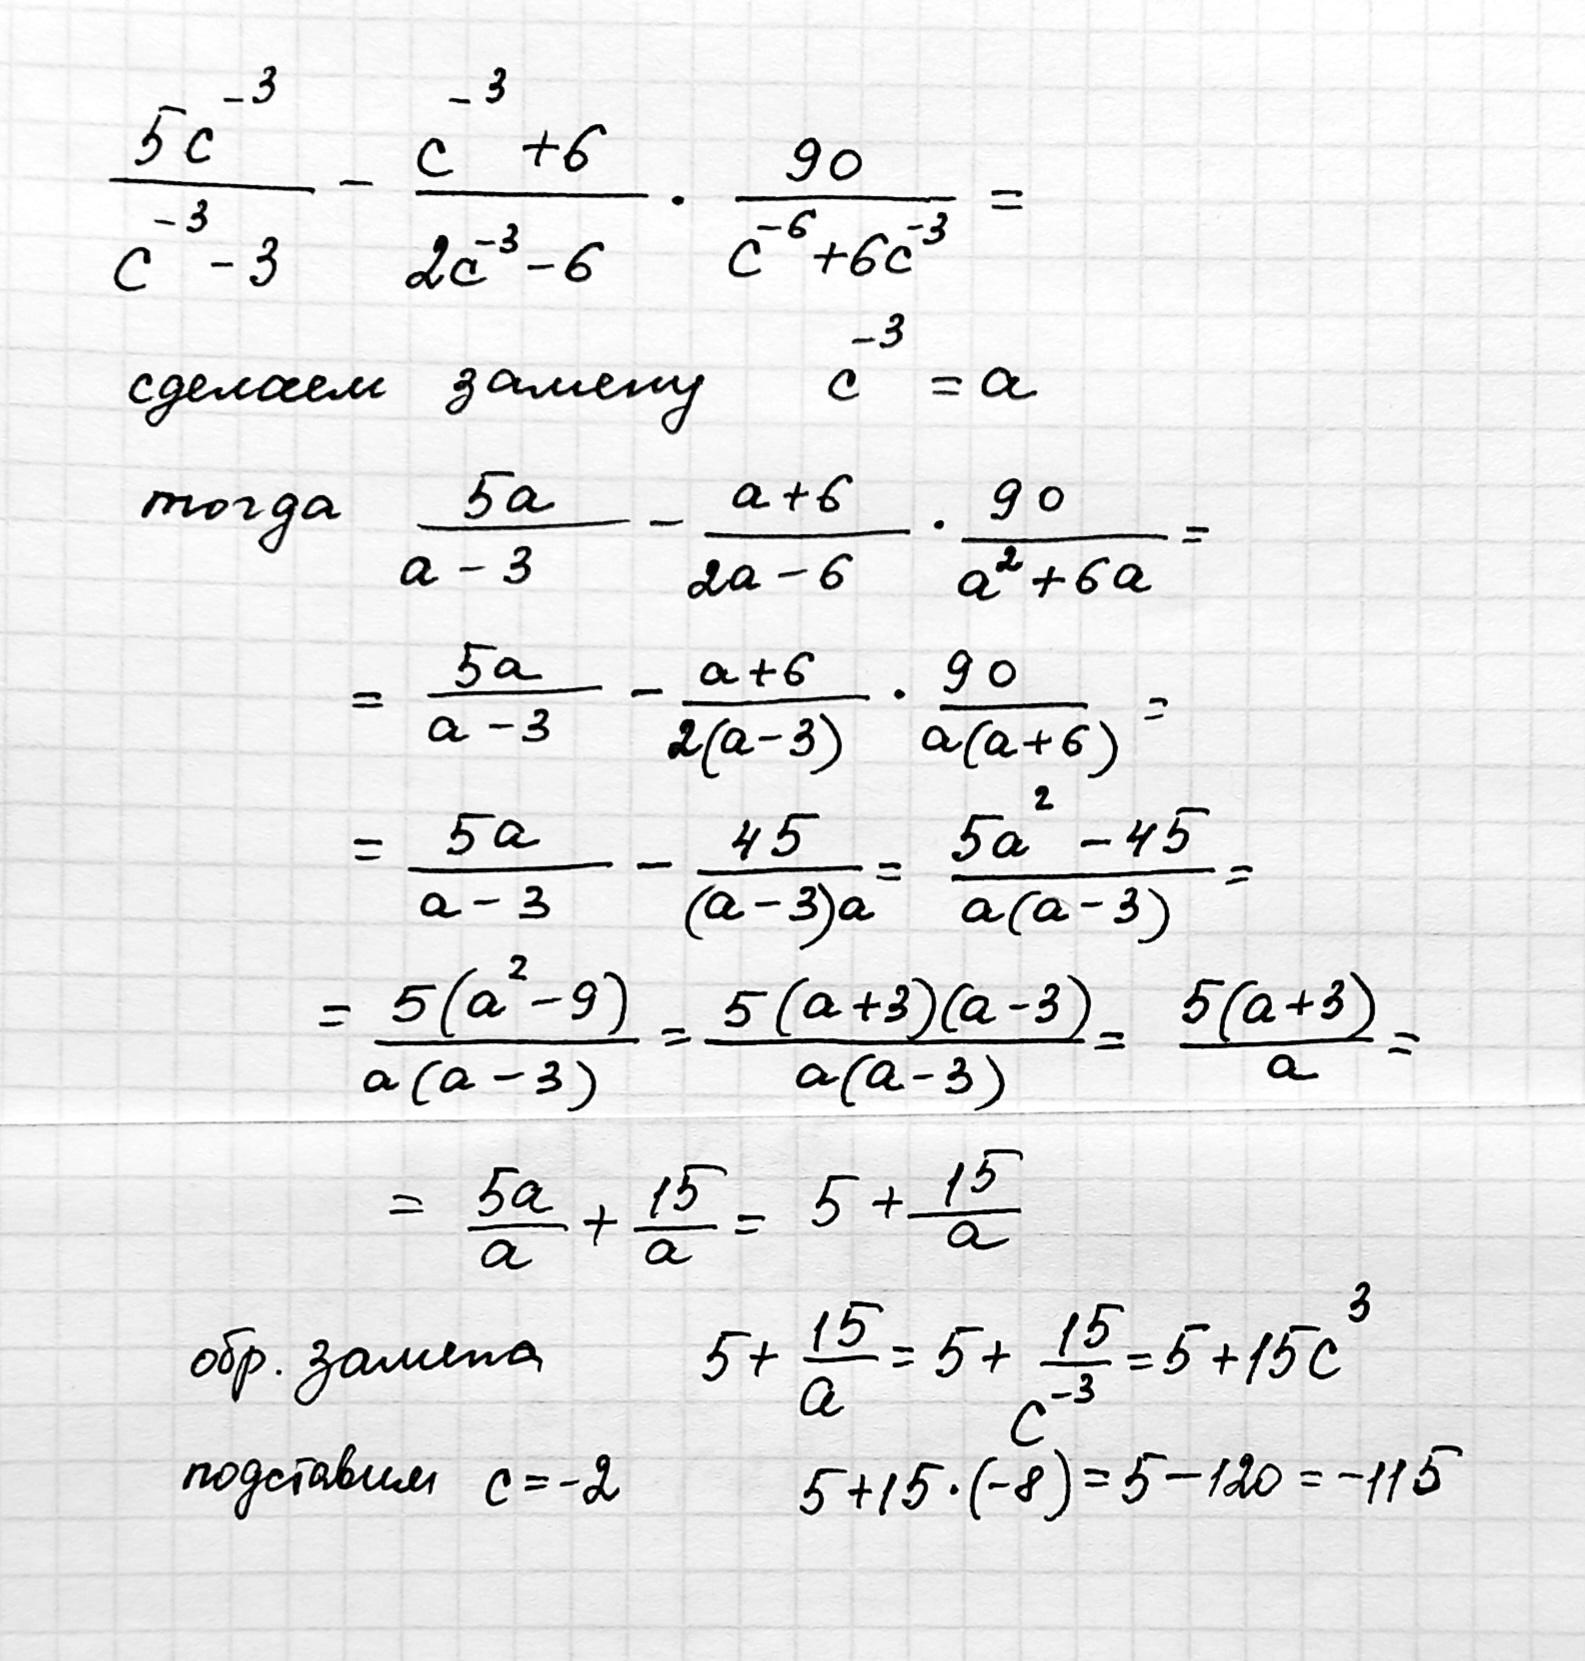 5c⁻³/(c⁻³ - 3) - (c⁻³ + 6)/(2c⁻³ - 6) · 90/(c⁻⁶ + 6c⁻³) =
сделаем замену c⁻³ = a
тогда 5a/(a - 3) - (a + 6)/(2a - 6) · 90/(a² + 6a) =
= 5a/(a - 3) - (a + 6)/(2(a - 3)) · 90/(a(a + 6)) =
= 5a/(a - 3) - 45/((a - 3)a) = (5a² - 45)/(a(a - 3)) =
= 5(a² - 9)/(a(a - 3)) = 5(a + 3)(a - 3)/(a(a - 3)) = 5(a + 3)/a =
= 5a/a + 15/a = 5 + 15/a
обр. замена 5 + 15/a = 5 + 15/c⁻³ = 5 + 15c³
подставим c = -2 5 + 15 · (-8) = 5 - 120 = -115